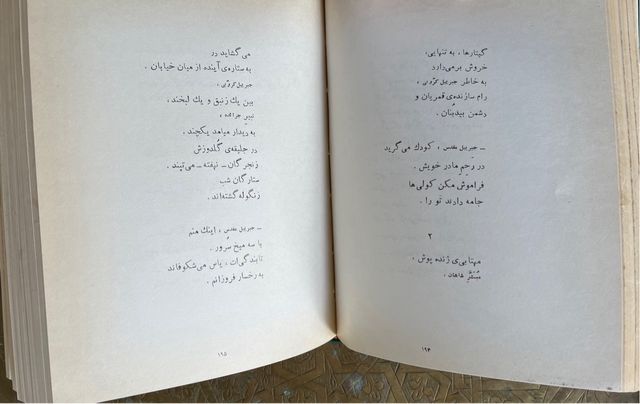 گیتارها ، به تنهایی،
خروش برمی‌دارد
به خاطر جبریل
رام سازنده‌ی قمریان و
دشمن بیدبنان .
ــ جبریل مقدس ، کودک می‌گرید
در رَحِمِ مادر خویش .
فراموش مکن کولی‌ها
جامه دادند تو را .
۲
مهتابی‌ی ژنده پوش ،
شاهان ،
۱۹۴
می گشاید در
به ستاره‌ی آینده از میان خیابان .
جبریل
بین یك زنبق و یك لبخند ،
به دیدار میامد یکچند .
در جلیقه‌ی گلدوزش
زنجرگان ــ نهفته ــ می‌تپند .
ستارگان شب
زنگوله گشته‌اند .
ــ جبریل مقدس ، اینك منم
با سه میخ سُرور .
تابندگی‌ات ، یاس می‌شکوفاند
به رخسار فروزانم .
۱۹۵